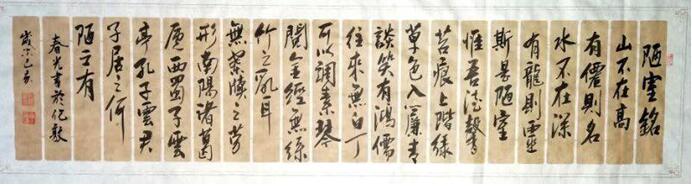 陋室銘
山不在高
有僊則名
水不在深
有龍則靈
斯是陋室
惟吾德馨
苔痕上階緑
草色入簾青
談笑有鴻儒
往來無白丁
可以調素琴
閱金經無絲
竹之乱耳
無案牘之勞
形南陽諸葛
廬西蜀子雲
亭孔子雲君
子居之何
陋之有
春光書於伦敦
歲次己亥